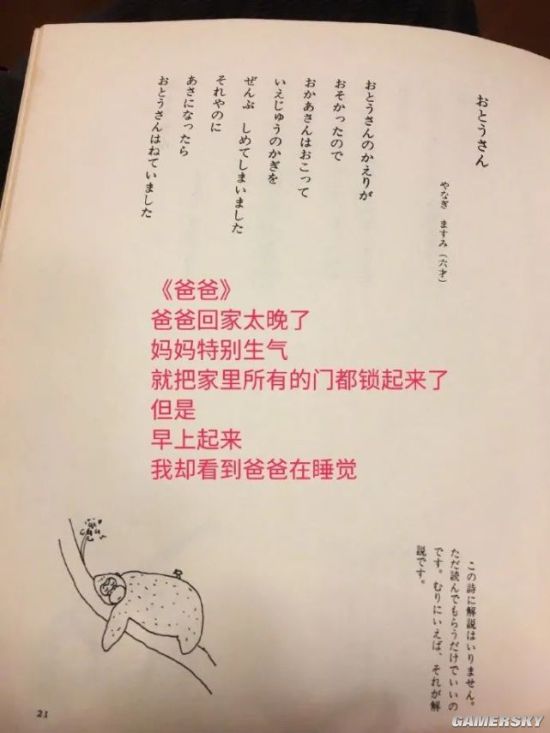 おとうさん
やなぎ ますみ(六才)
おとうさんのかえりが
おそかったので
おかあさんはおこって
いえじゅうのかぎを
ぜんぶ しめてしまいました
それやのに
あさになったら
おとうさんはねていました
《爸爸》
爸爸回家太晚了
妈妈特别生气
就把家里所有的门都锁起来了
但是
早上起来
我却看到爸爸在睡觉
この詩に解説はいりません。
ただ読んでもらうだけでいいの
です。むりにいえば、それが解
説です。
21
GAMERSKY